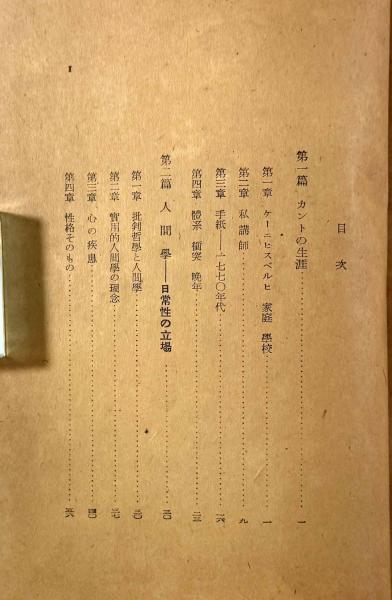 目次
第一篇 カントの生涯……一
第一章 ケーニヒスベルヒ 家庭 學校……一
第二章 私講師……九
第三章 手紙——一七七〇年代……一六
第四章 體系 衝突 晩年……二三
第二篇 人間學——日常性の立場……三〇
第一章 批判哲學と人間學……三〇
第二章 實用的人間學の理念……三七
第三章 心の疾患……
第四章 性格そのもの……
1